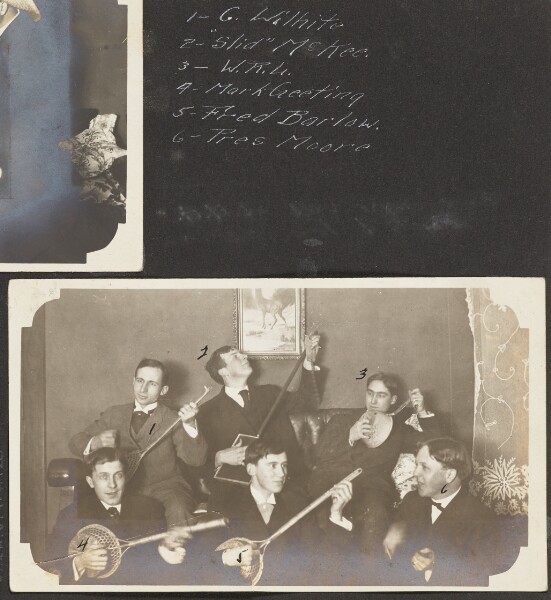 1- G. Wilhite
2- "Slid" McKee.
3- W.R.L.
4- Mark Geeting
5- Fred Barlow.
6- Pres Moore
2
3
1
6
4
5